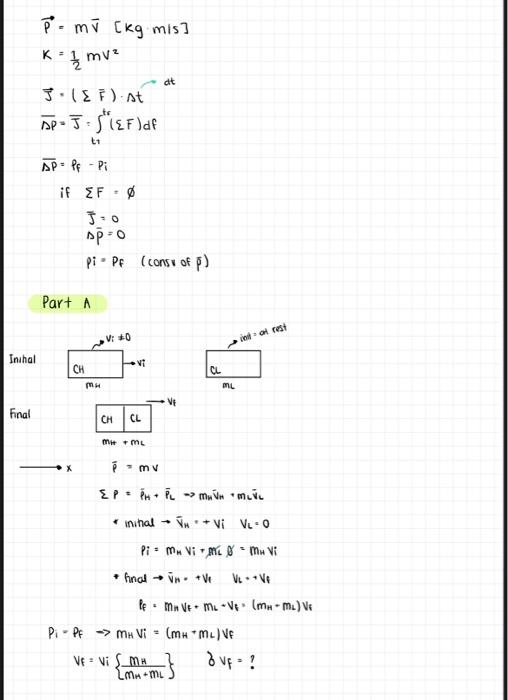 P⃗ = m v̄ [kg·m/s]
K = 1/2 mv²
J⃗ = (Σ F̄)·Δt dt
Δp = J̄ = ∫ t1 tf (ΣF)df
Δp = Pf - Pi
if ΣF = ∅
J̄ = 0
Δp̄ = 0
Pi = Pf (consv of p̄)
Part A
Vi ≠ 0 init = at rest
Initial CH Vi CL
mH mL
Vf
Final CH CL
mH + mL
x p̄ = mv
Σ P = P̄H + P̄L -> mHv̄H + mLv̄L
* initial → v̄H = + Vi VL = 0
Pi = mH Vi + mL 0 = mH Vi
* final → v̄H = +Vf VL = +Vf
Pf = mH Vf + mL + Vf = (mH + mL) Vf
Pi = Pf -> mH Vi = (mH + mL) Vf
Vf = Vi { mH / mH + mL } ∂Vf = ?